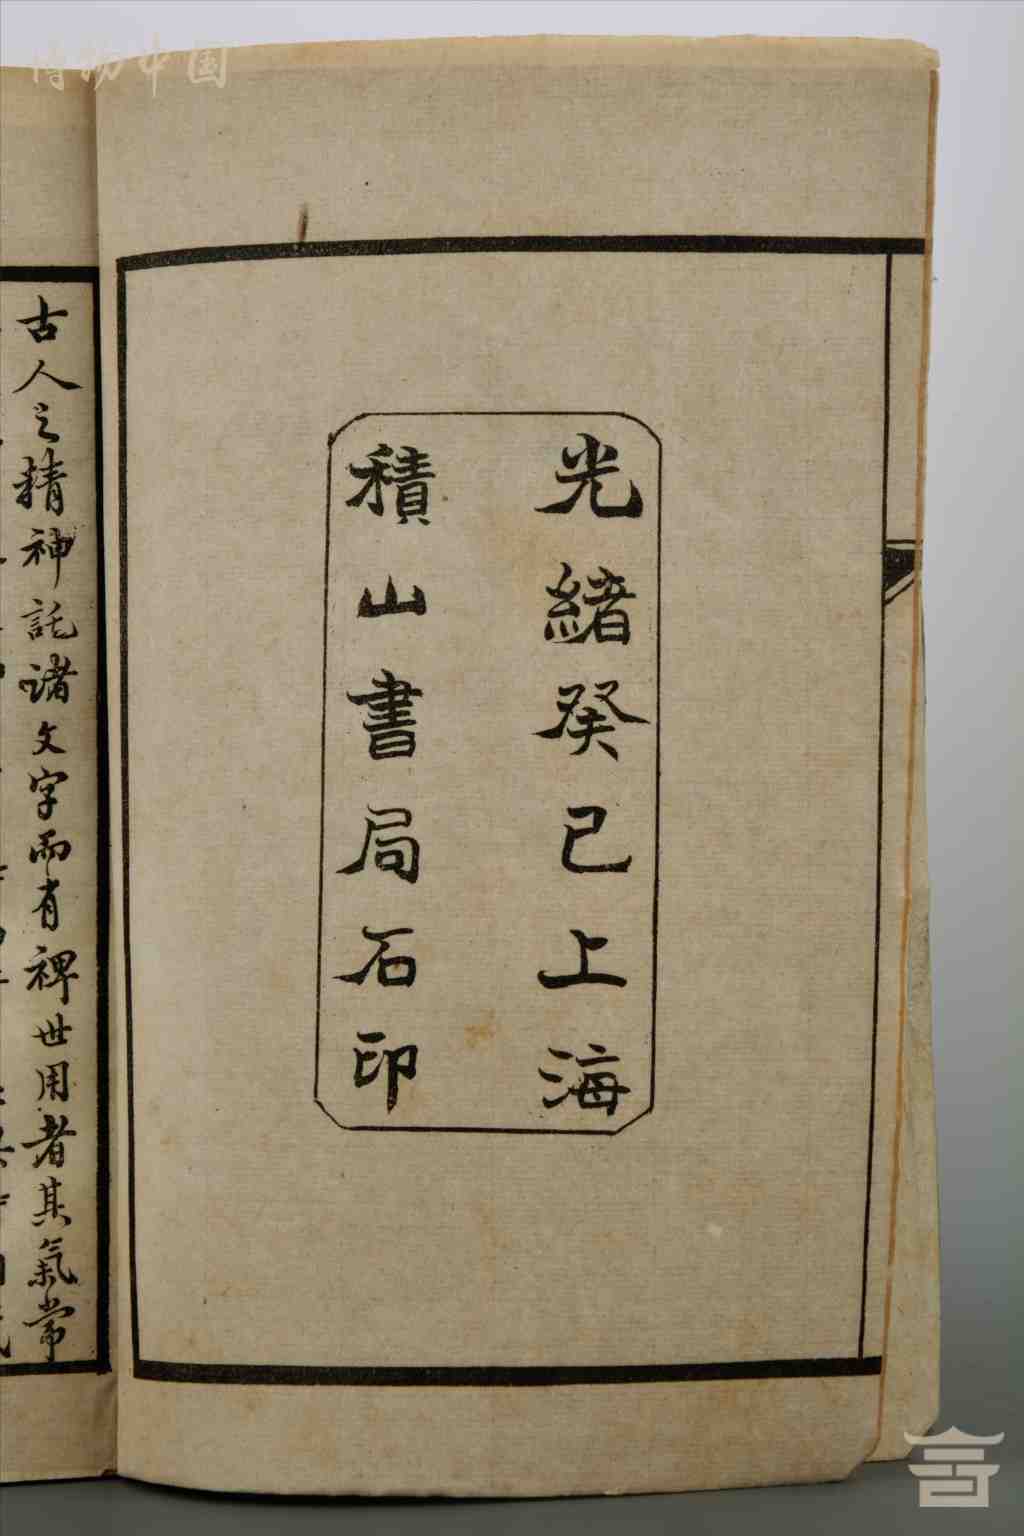 博物中国
光緒癸巳上海
積山書局石印
古人之精神託諸文字而有裨世用者其氣常